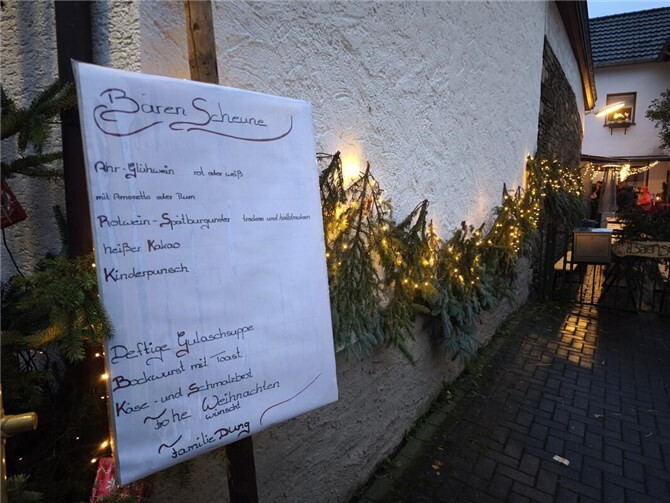 Bären Scheune
Ahr-Glühwein rot oder weiß
mit Amaretto oder Rum
Rotwein-Spätburgunder trocken und halbtrocken
heißer Kakao
Kinderpunsch
Deftige Gulaschsuppe
Bockwurst mit Toast
Käse- und Schmalzbrot
~ Frohe Weihnachten
wünscht
~ Familie Dung